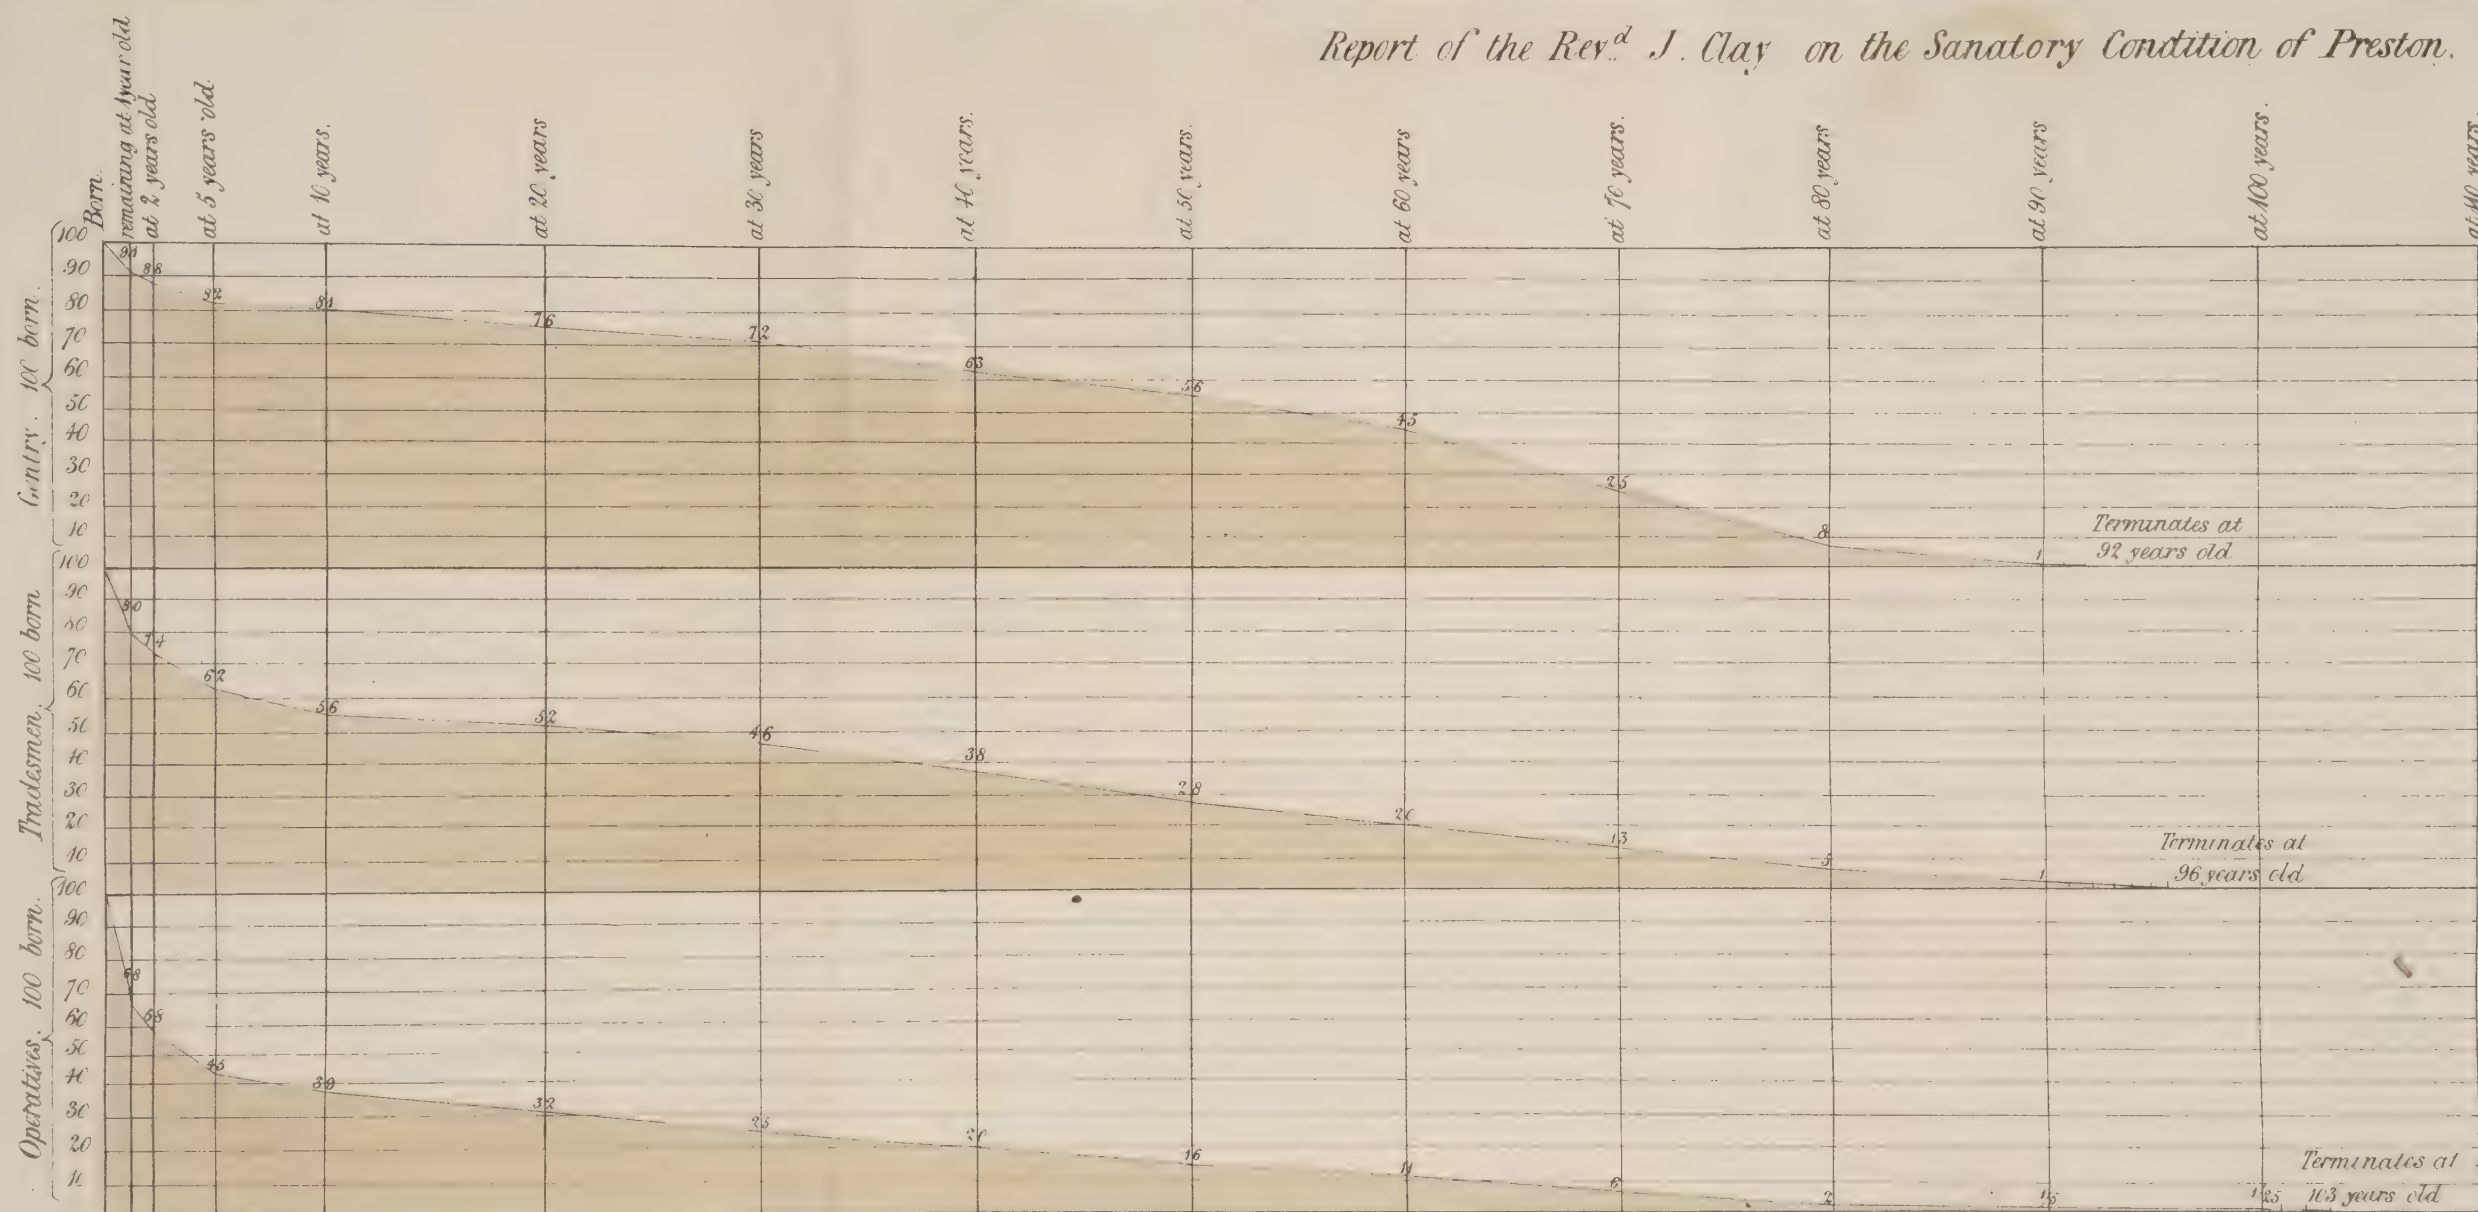 Report of the Rev.d J. Clay on the Sanatory Condition of Preston.
Born.
remaining at 1 year old
at 2 years old
at 5 years old.
at 10 years.
at 20 years
at 30 years
at 40 years.
at 50 years.
at 60 years
at 70 years.
at 80 years
at 90 years
at 100 years.
at 110 years.
Gentry. 100 born.
100
90
80
70
60
50
40
30
20
10
91
88
82
81
76
72
63
56
45
25
8
1
Terminates at
92 years old
Tradesmen. 100 born
100
90
80
70
60
50
40
30
20
10
80
74
62
56
52
46
38
28
20
13
5
1
Terminates at
96 years old
Operatives. 100 born.
100
90
80
70
60
50
40
30
20
10
68
58
45
39
32
25
20
16
11
6
2
Terminates at
103 years old